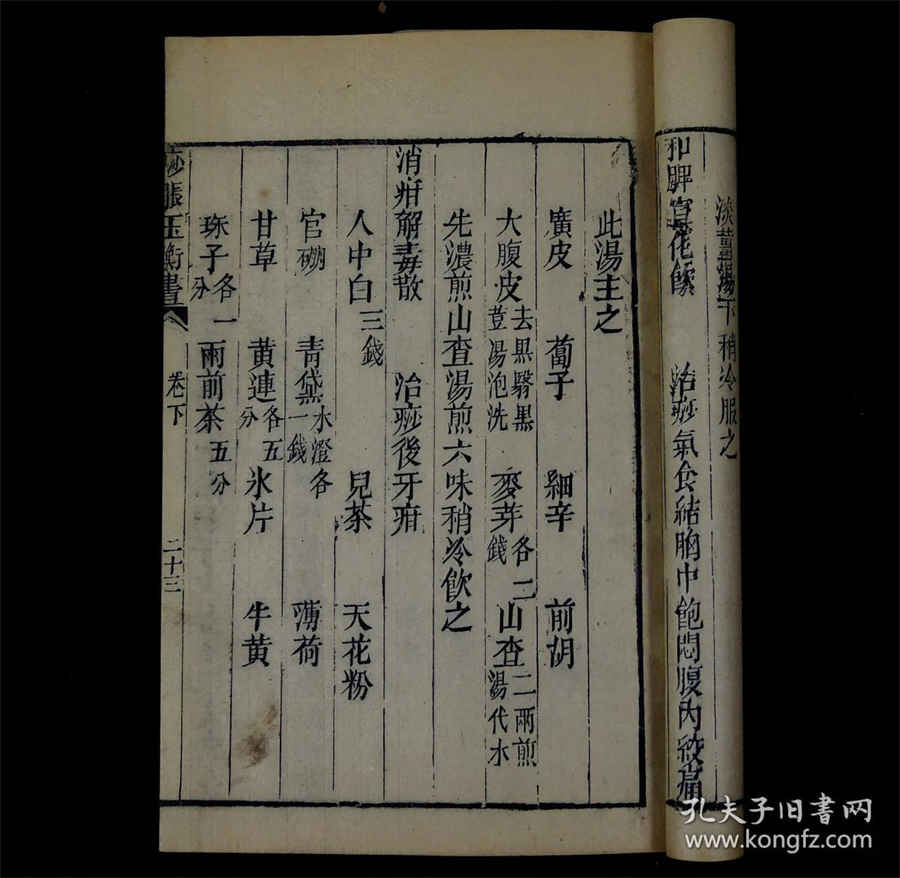 淡薑湯下稍冷服之
和脾宣花飲 治痧氣食結胸中飽悶腹內絞痛
此湯主之
廣皮 蔔子 細辛 前胡
大腹皮去黑翳黑荳湯泡洗 麥芽各二錢 山查二兩煎湯代水
先濃煎山查湯煎六味稍冷飲之
消疳解毒散 治痧後牙疳
人中白三錢 兒茶 天花粉
官硼 青黛水澄各一錢 薄荷
甘草 黃連各五分 氷片 牛黃
珠子各一分 雨前茶五分
痧脹玉衡書 卷下 二十三
孔夫子旧书网
www.kongfz.com